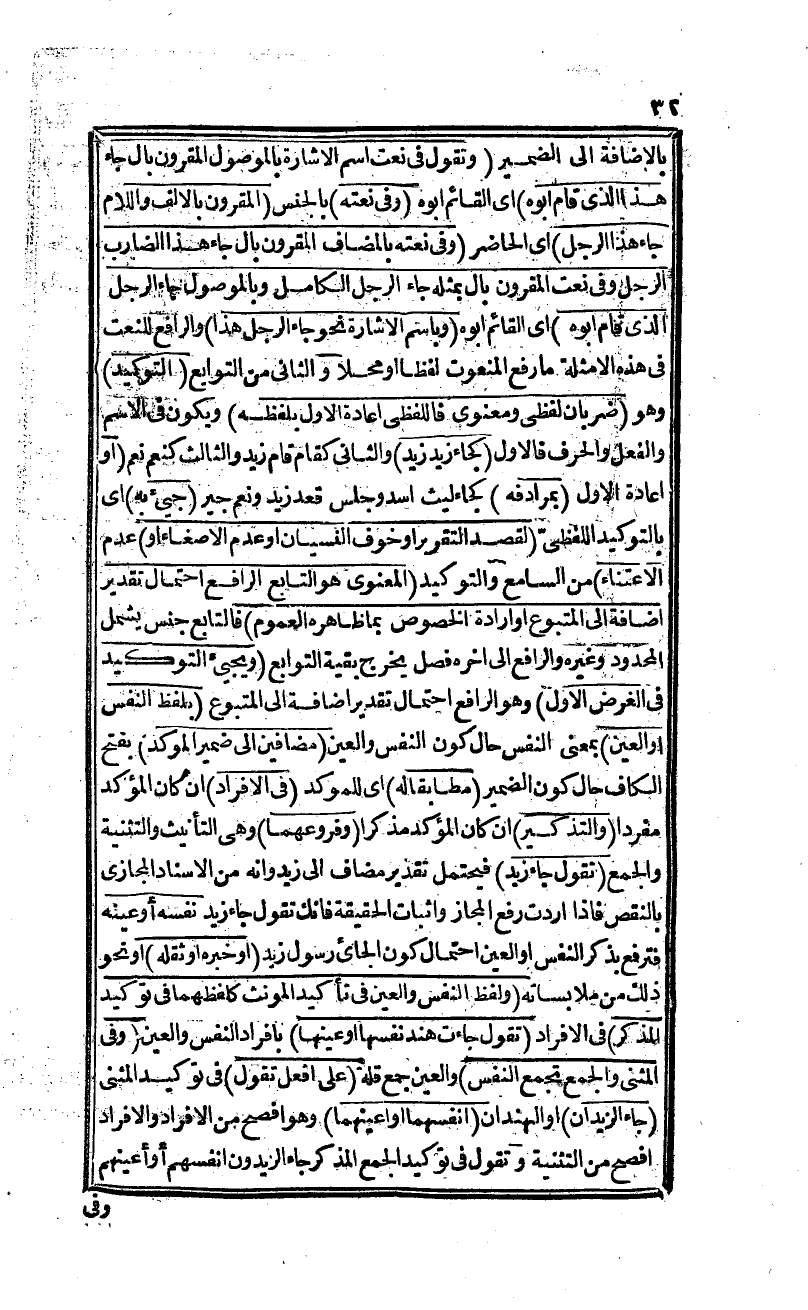 ٣٢
بالاضافة الى الضمير ( وتقول فى نعت اسم الاشارة بالموصول المقرون بال جاء
هذا الذى قام ابوه ) اى القائم ابوه ( وفى نعته ) بالجنس ( المقرون بالالف واللام
جاء هذا الرجل ) اى الحاضر ( وفى نعته بالمضاف المقرون بال جاء هذا الضارب
الرجل وفى نعت المقرون بال بمثله جاء الرجل الكامل وبالموصول جاء الرجل
الذى قام ابوه ) اى القائم ابوه ( وباسم الاشارة نحو جاء الرجل هذا ) والرافع للنعت
فى هذه الامثلة ما رفع المنعوت لفظا او محلا و الثانى من التوابع ( التوكيد )
وهو ( ضربان لفظى ومعنوى فاللفظى اعادة الاول بلفظه ) ويكون فى الاسم
والفعل والحرف فالاول ( كجاء زيد زيد ) والثانى كقام قام زيد والثالث كنعم نعم ( او
اعادة الاول ( بمرادفه ) كجاء ليث اسد وجلس قعد زيد ونعم جير ( جىء به ) اى
بالتوكيد اللفظى ( لقصد التقرير او خوف النسيان او عدم الاصغاء او ) عدم
الاعتناء ) من السامع والتوكيد ( المعنوى هو التابع الرافع احتمال تقدير
اضافة الى المتبوع او ارادة الخصوص بما ظاهره العموم ) فالتابع جنس يشمل
المحدود وغيره والرافع الى اخره فصل يخرج بقية التوابع ( ويجىء التوكيد
فى الغرض الاول ) وهو الرافع احتمال تقدير اضافة الى المتبوع ( بلفظ النفس
او العين ) بمعنى النفس حال كون النفس والعين ( مضافين الى ضمير الموكد ) بفتح
الكاف حال كون الضمير ( مطابقا له ) اى للموكد ( فى الافراد ) ان كان المؤكد
مفردا ( والتذكير ) ان كان المؤكد مذكرا ( وفروعهما ) وهى التأنيث والتثنية
والجمع ( تقول جاء زيد ) فيحتمل تقدير مضاف الى زيد وانه من الاسناد المجازى
بالنقص فاذا اردت رفع المجاز واثبات الحقيقة فانك تقول جاء زيد نفسه أو عينه
فترفع بذكر النفس او العين احتمال كون الجائ رسول زيد ( او خبره او ثقله ) او نحو
ذلك من ملابساته ( ولفظ النفس والعين فى تأكيد المونث كلفظهما فى توكيد
المذكر ) فى الافراد ( تقول جاءت هند نفسها او عينها ) بافراد النفس والعين ( وفى
المثنى والجمع تجمع النفس ) والعين جمع قلة ( على افعل تقول ) فى توكيد المثنى
( جاء الزيدان ) او الهندان ( انفسهما او اعينهما ) وهو افصح من الافراد والافراد
افصح من التثنية و تقول فى توكيد الجمع المذكر جاء الزيدون انفسهم أو أعينهم
وفى